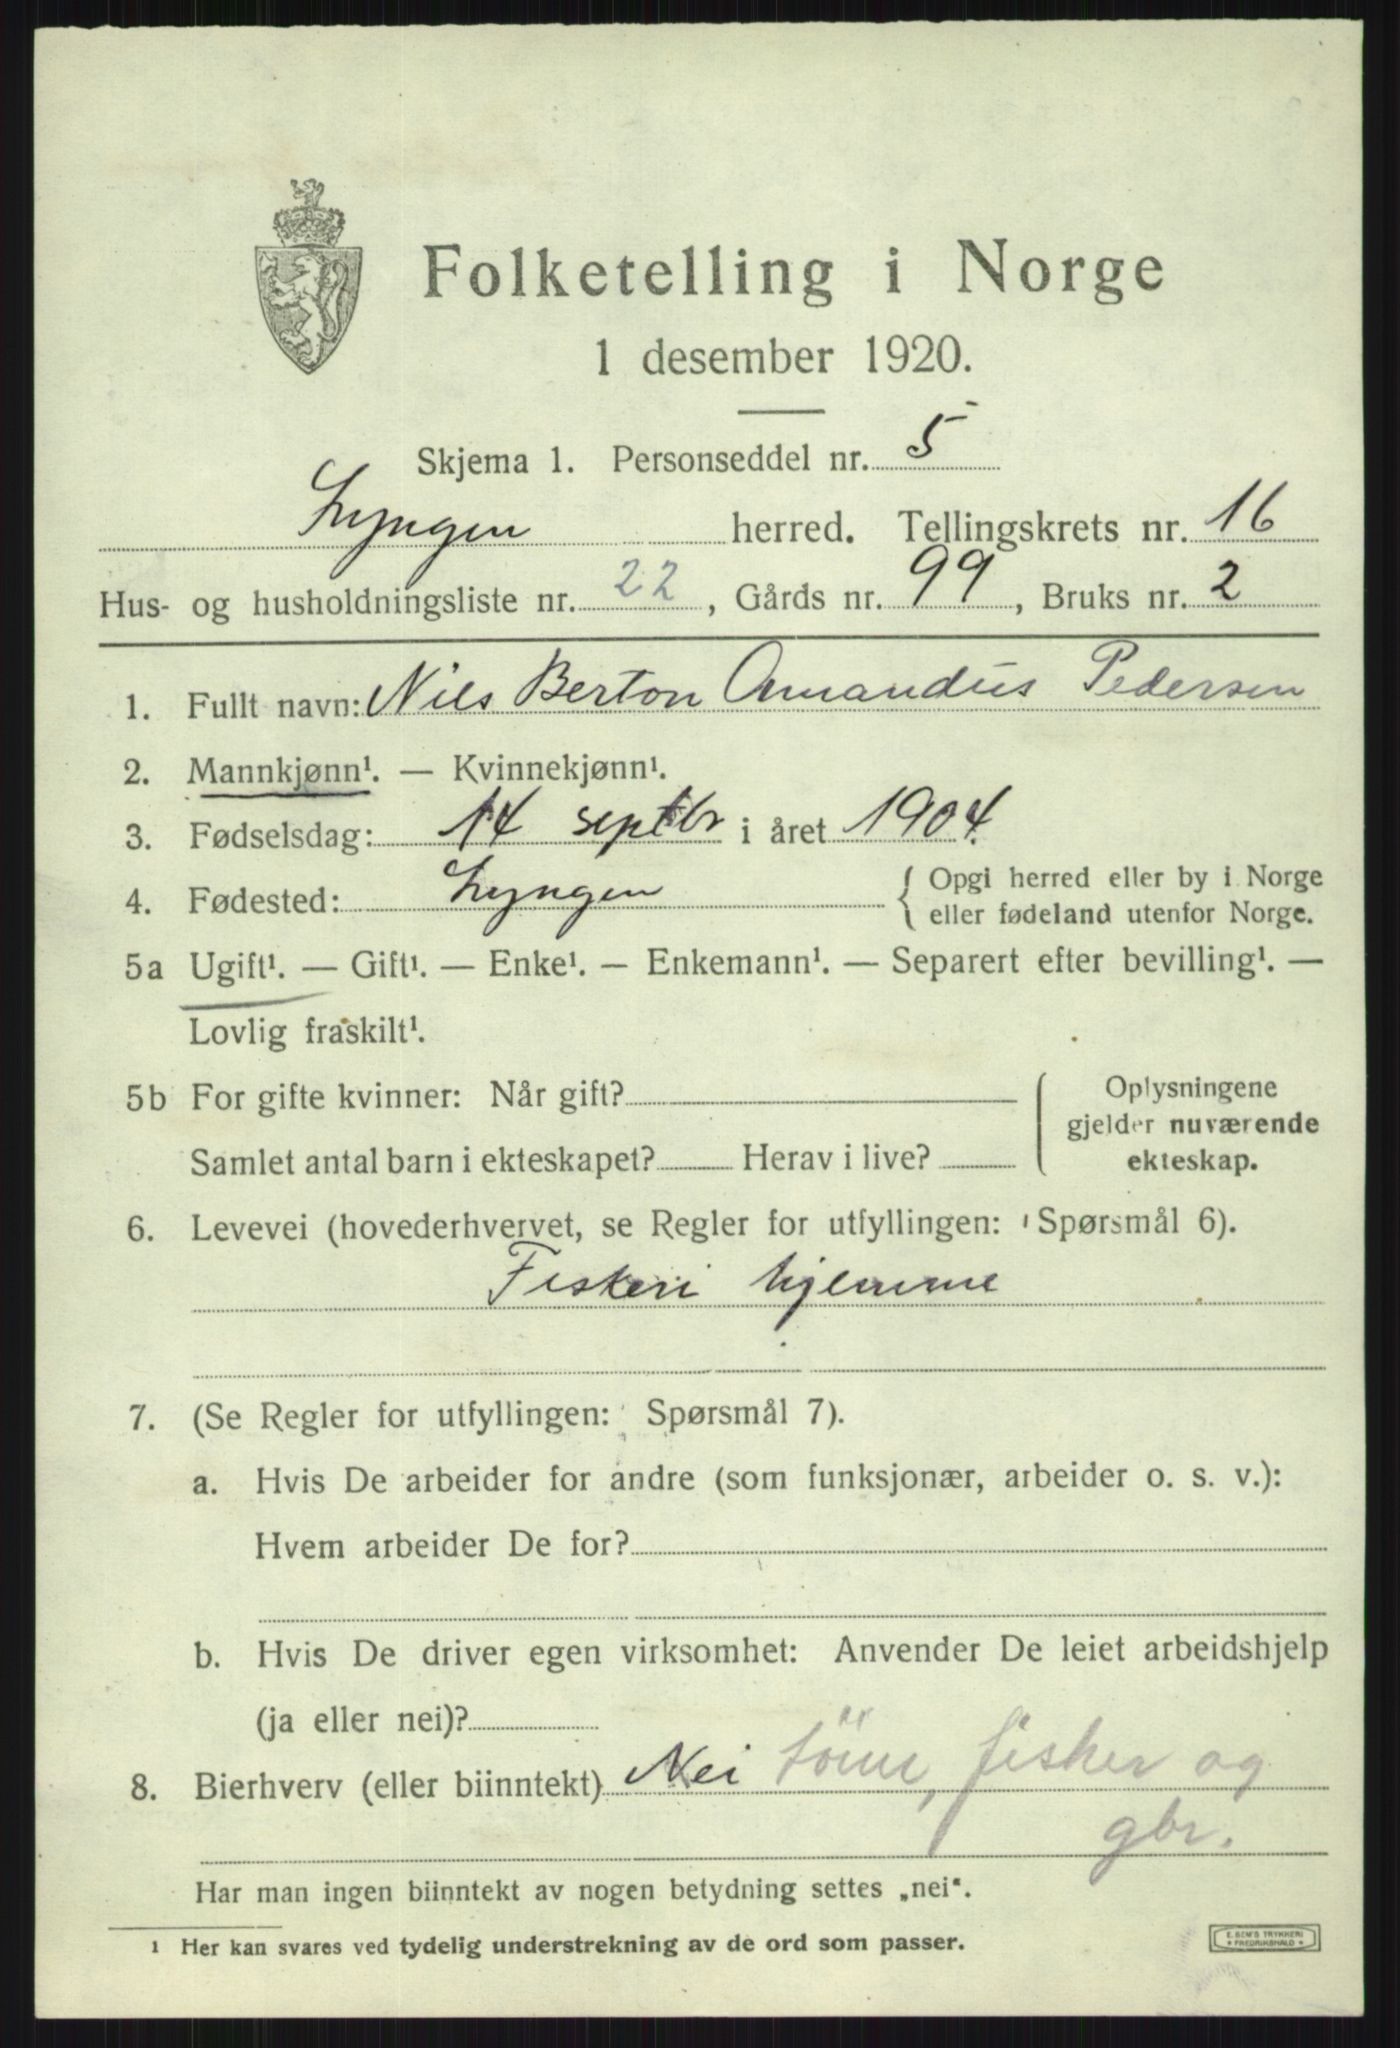 Folketelling i Norge
1 desember 1920.
Skjema 1. Personseddel nr. 5
Lyngen herred. Tellingskrets nr. 16
Hus- og husholdningsliste nr. 22, Gårds nr. 99, Bruks nr. 2
1. Fullt navn: Nils Berton Amandus Pedersen
2. Mannkjønn¹. — Kvinnekjønn¹.
3. Fødselsdag: 14 septbr i året 1904.
4. Fødested: Lyngen { Opgi herred eller by i Norge
eller fødeland utenfor Norge.
5a Ugift¹. — Gift¹. — Enke¹. — Enkemann¹. — Separert efter bevilling¹. —
Lovlig fraskilt¹.
5b For gifte kvinner: Når gift? Oplysningene
gjelder nuværende
Samlet antal barn i ekteskapet? Herav i live? ekteskap.
6. Levevei (hovederhvervet, se Regler for utfyllingen: Spørsmål 6).
Fiskeri hjemme
7. (Se Regler for utfyllingen: Spørsmål 7).
a. Hvis De arbeider for andre (som funksjonær, arbeider o. s. v.):
Hvem arbeider De for?
b. Hvis De driver egen virksomhet: Anvender De leiet arbeidshjelp
(ja eller nei)?
8. Bierhverv (eller biinntekt) Nei fisker og
gbr.
Har man ingen biinntekt av nogen betydning settes „nei“.
¹ Her kan svares ved tydelig understrekning av de ord som passer.
E. SEM'S TRYKKERI
* FREDRIKSHALD *